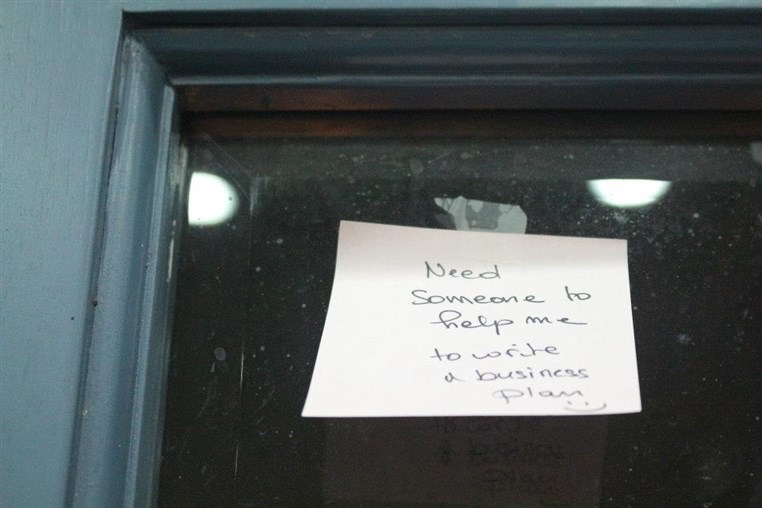 Need
someone to
help me
to write
a business
plan